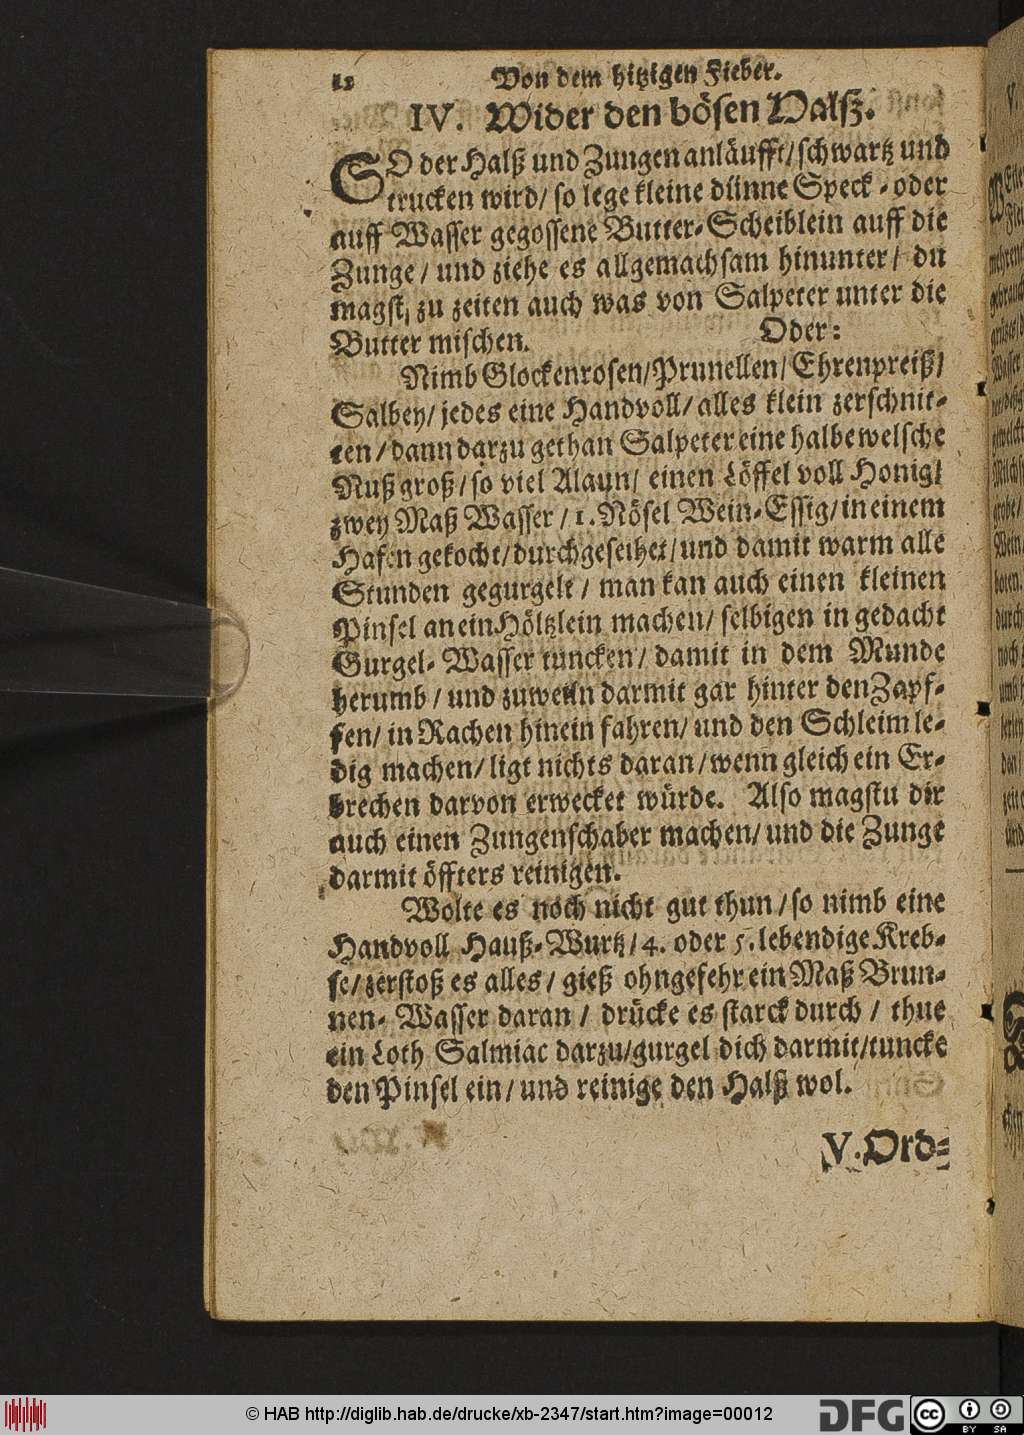 12 Von dem hitzigen Fieber.
IV. Wider den bösen Halß.
SO der Halß und Zungen anläufft/ schwartz und
trucken wird/ so lege kleine dünne Speck-oder
auff Wasser gegossene Butter-Scheiblein auff die
Zunge/ und ziehe es allgemachsam hinunter/ du
magst zu zeiten auch was von Salpeter unter die
Butter mischen. Oder:
Nimb Glockenrosen/ Prunellen/ Ehrenpreiß/
Salbey/ jedes eine Handvoll/ alles klein zerschnit-
ten/ dann darzu gethan Salpeter eine halbe welsche
Nuß groß/ so viel Alaun/ einen Löffel voll Honig/
zwey Maß Wasser/ 1. Nösel Wein-Essig/ in einem
Hafen gekocht/ durchgeseihet/ und damit warm alle
Stunden gegurgelt/ man kan auch einen kleinen
Pinsel an ein Höltzlein machen/ selbigen in gedacht
Gurgel-Wasser tuncken/ damit in dem Munde
herumb/ und zuweiln darmit gar hinter den Zapf-
fen/ in Rachen hinein fahren/ und den Schleim le-
dig machen/ ligt nichts daran/ wenn gleich ein Er-
brechen darvon erwecket würde. Also magstu dir
auch einen Zungenschaber machen/ und die Zunge
darmit öffters reinigen.
Wolte es noch nicht gut thun/ so nimb eine
Handvoll Hauß-Wurtz/ 4. oder 5. lebendige Kreb-
se/ zerstoß es alles/ gieß ohngefehr ein Maß Brun-
nen-Wasser daran/ drücke es starck durch/ thue
ein Loth Salmiac darzu/ gurgel dich darmit/ tuncke
den Pinsel ein/ und reinige den Halß wol.
V. Ord-
© HAB http://diglib.hab.de/drucke/xb-2347/start.htm?image=00012
DFG
cc BY SA